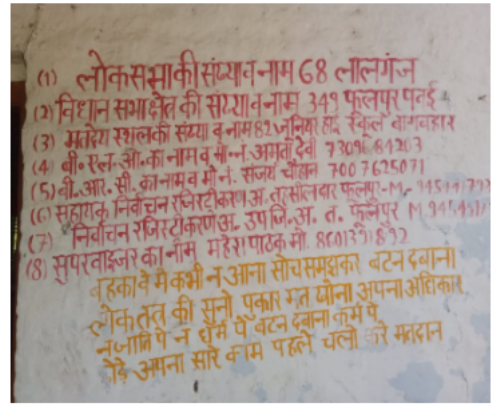 (1) लोकसभा की संख्या व नाम 68 लालगंज
(2) विधान सभा क्षेत्र की संख्या व नाम 349 फूलपुर पवई
(3) मतदेय स्थल की संख्या व नाम 82 जूनियर हाई स्कूल बागबहार
(4) बी. एल. ओ. का नाम व मो. नं. देवी 7309684203
(5) बी. आर. सी. का नाम व मो नं. संजय चौहान 7007625071
(6) सहायक निर्वाचन रजिस्टीकरण अ. तहसीलदार फूलपुर- M-
(7) निर्वाचन रजिस्टीकरण अ. उप जि. अ. त. फूलपुर M.
(8) सुपरवाइजर का नाम महेश पाठक मो.
बहकावे मे कभी न आना सोच समझकर बटन दबाना
लोकतंत्र की सुनो पुकार मत खोना अपना अधिकार
न जाति पे न धर्म पे बटन दबाना कर्म पे
छोड़े अपना सारे काम पहले चलो करे मतदान